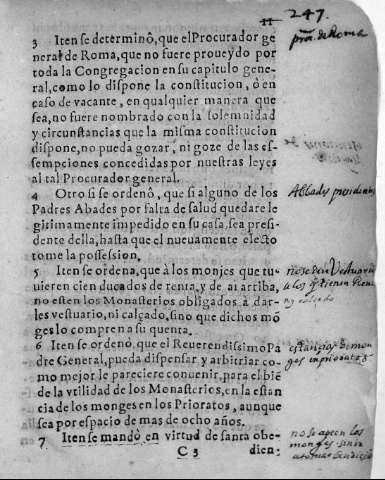 11
247.
3 Iten se determinò, que el Procurador ge
neral de Roma, que no fuere proueydo por
toda la Congregacion en su capitulo gene-
ral, como lo dispone la constitucion, ò en
caso de vacante, en qualquier manera que
sea, no fuere nombrado con la solemnidad
y circunstancias que la misma constitucion
dispone, no pueda gozar, ni goze de las es-
sempciones concedidas por nuestras leyes
al tal Procurador general.
de Roma
4 Otro si se ordenô, que si alguno de los
Padres Abades por falta de salud quedare le
gitimamente impedido en su casa, sea presi
dente della, hasta que el nueuamente electo
tome la possession.
Abbades presidentes
5 Iten se ordena, que à los monjes que tu-
uieren cien ducados de renta, y de ai arriba,
no esten los Monasterios obligados à dar-
les vestuario, ni calçado, sino que dichos mõ
ges lo compren a su quenta.
no se de Vestuario
a los q tienen
ny calçado
6 Iten se ordenò, que el Reuerendissimo Pa
dre General, pueda dispensar, y arbitriar co
mo mejor le pareciere conuenir, para el biẽ
de la vtilidad de los Monasterios, en la estan
cia de los monges en los Prioratos, aunque
sea por espacio de mas de ocho años.
mon
ges
7 Iten se mandò en virtud de santa obe-
C 3 dien:
no se
monges